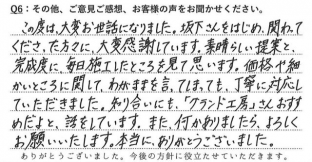 Q6：その他、ご意見ご感想、お客様の声をお聞かせください。
この度は、大変お世話になりました。坂下さんをはじめ、関わって
くださった方々に、大変感謝しています。素晴らしい提案と、
完成度に、毎日施工したところを見て思います。価格や細
かいところに関して、わがままを言ってしまっても、丁寧に対応し
ていただきました。知り合いにも、「グランド工房」さんおすす
めだよと、話をしています。また、何かありましたら、よろしく
お願いいたします。本当に、ありがとうございました。
ありがとうございました。今後の方針に役立たせていただきます。